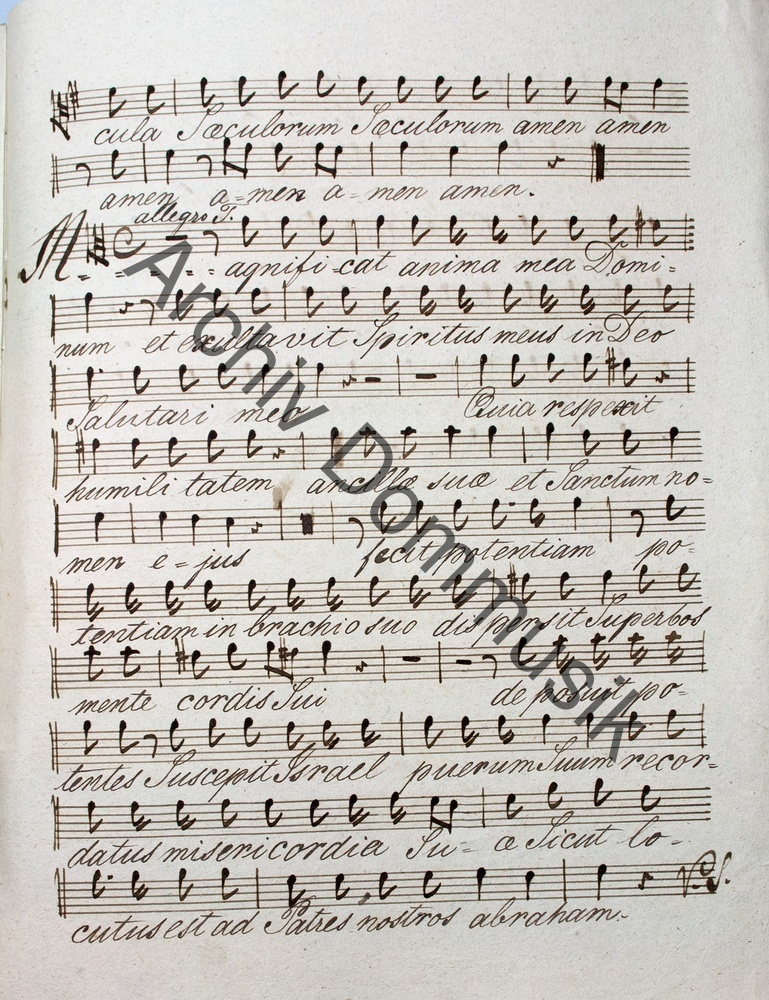 cula Sæculorum Sæculorum amen amen
amen a=men a=men amen.
allegro T.
M - - - - - agnifi-cat anima mea Domi=
num et exultavit Spiritus meus in Deo
Salutari meo Quia respexit
humili tatem ancillæ suæ et Sanctum no=
men e=jus fecit potentiam po=
tentiam in brachio suo dispersit Superbos
mente cordis Sui deposuit po=
tentes Suscepit Israel puerum Suum recor=
datus misericordia Su- æ Sicut lo-
cutus est ad Patres nostros abraham.
V.S.
Archiv Dommusik